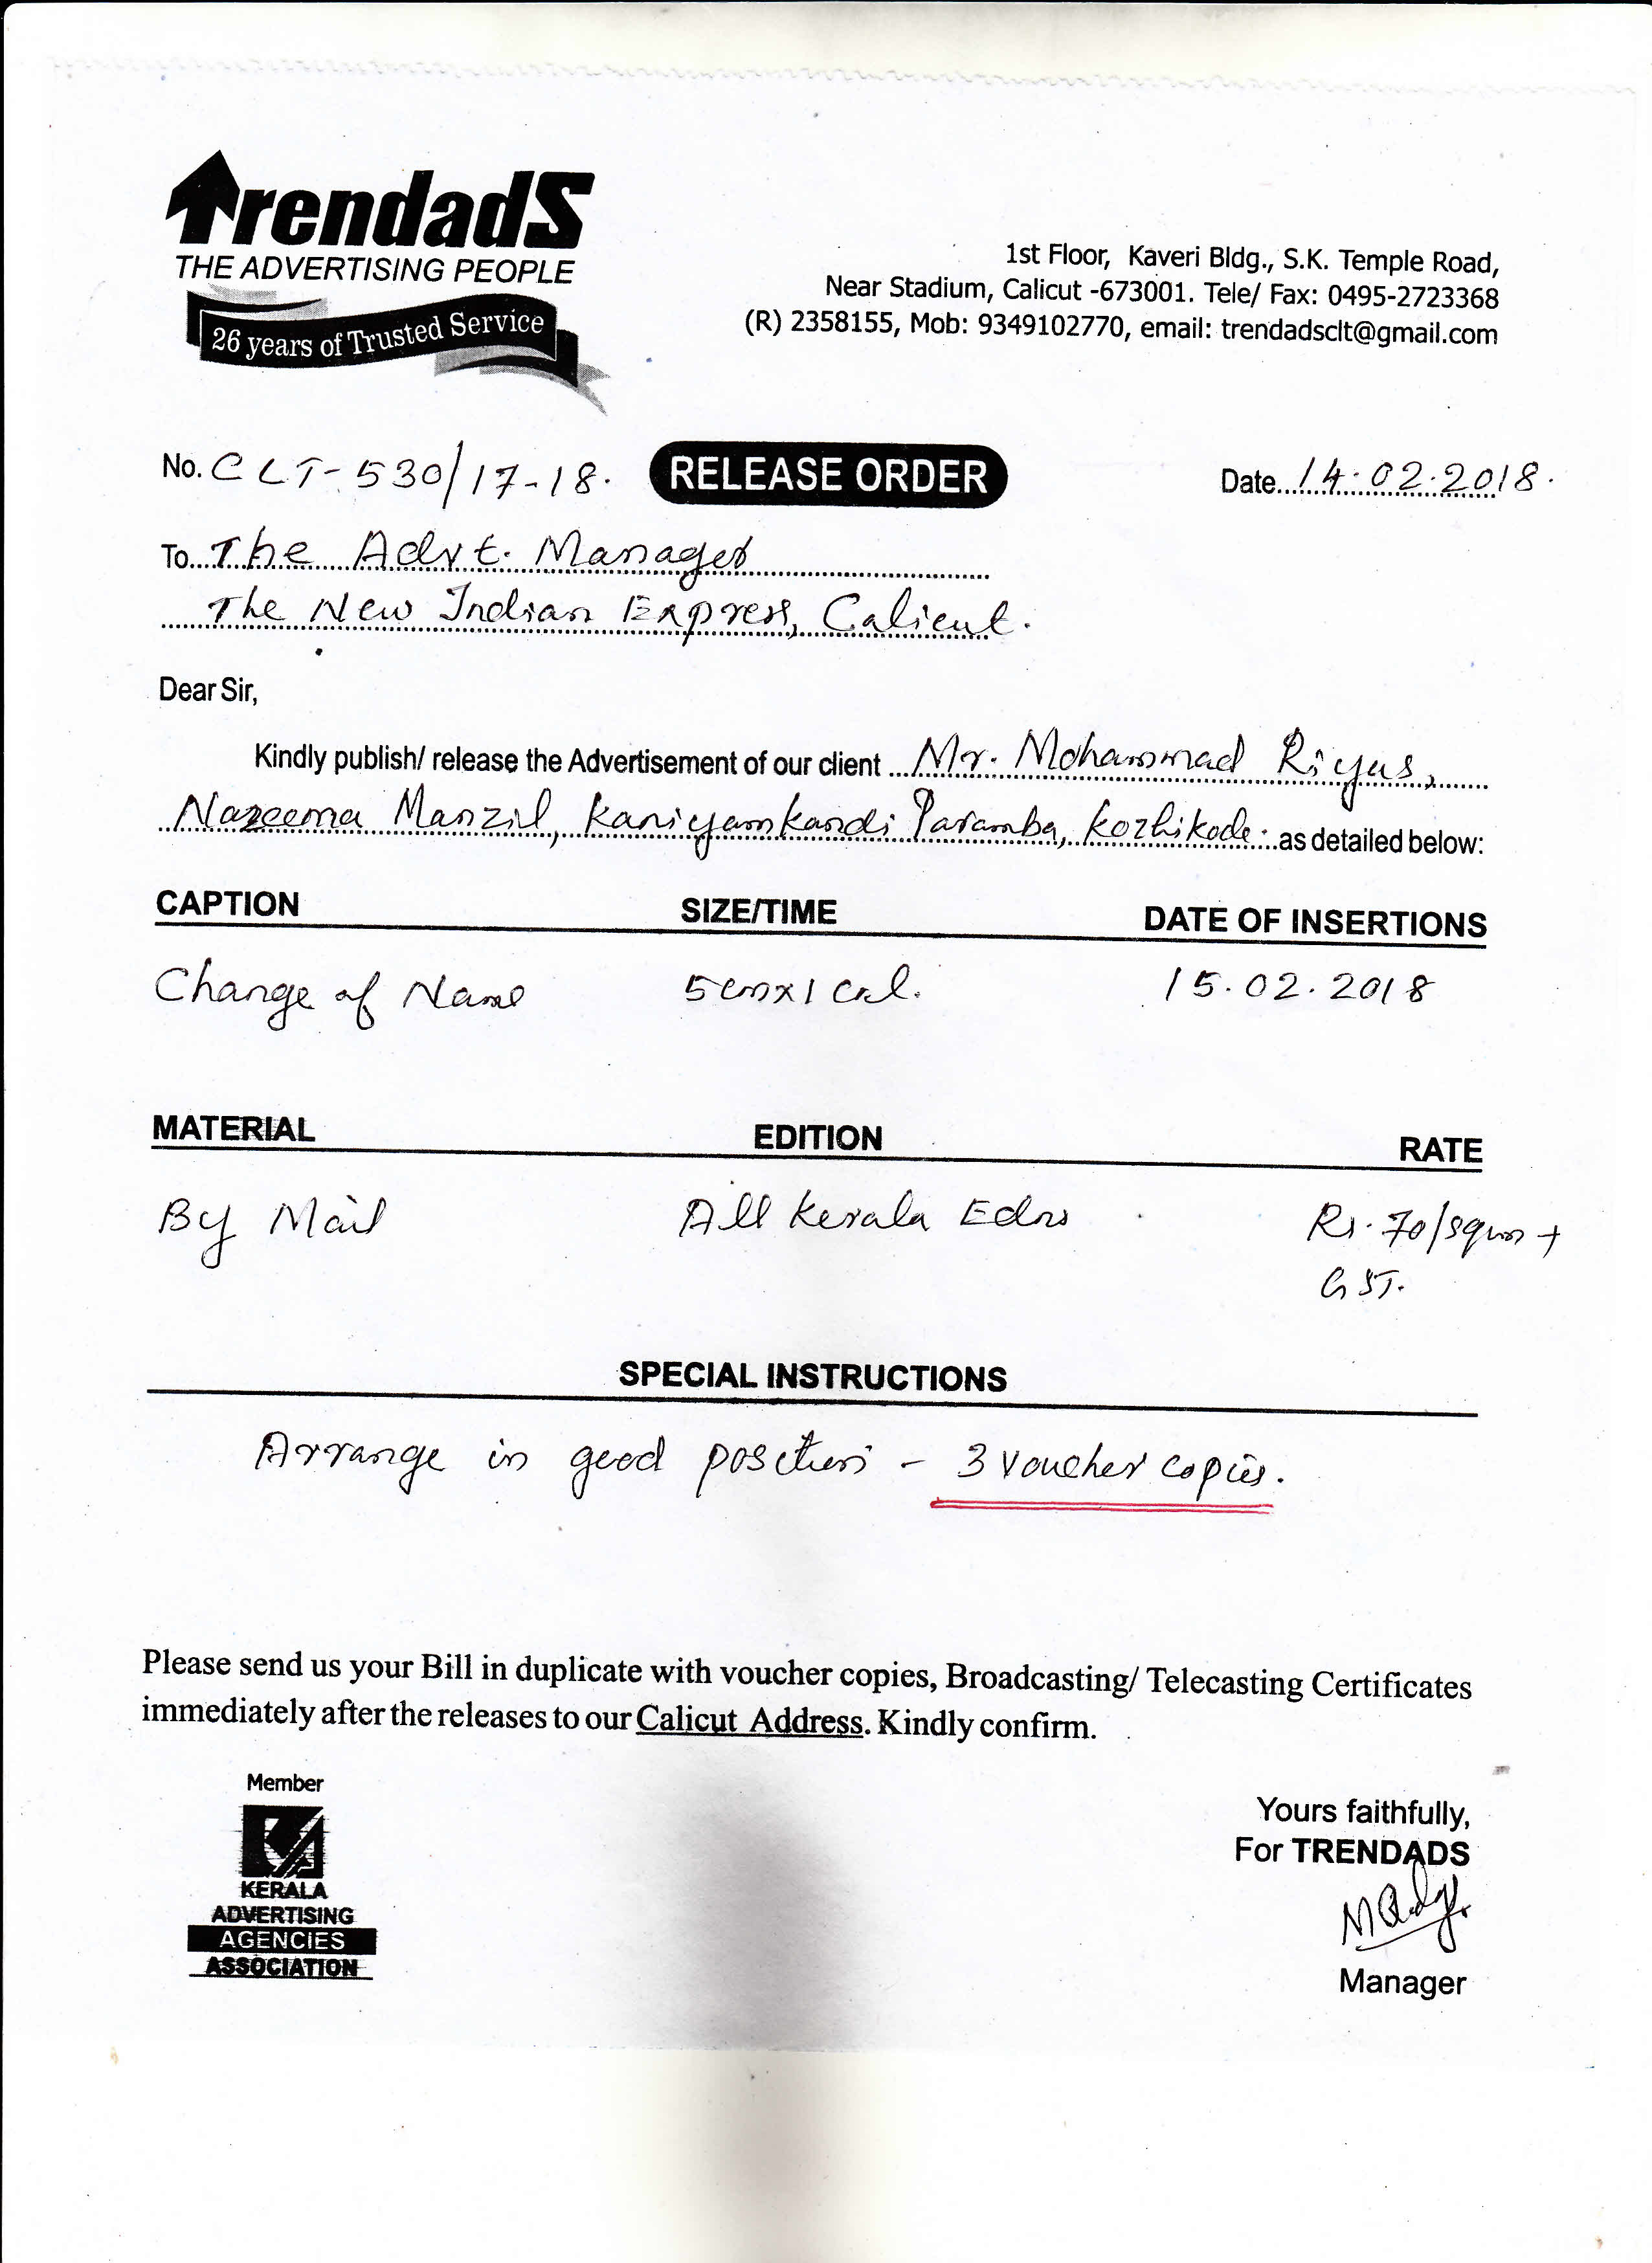 TrendadS
THE ADVERTISING PEOPLE
26 years of Trusted Service
1st Floor, Kaveri Bldg., S.K. Temple Road,
Near Stadium, Calicut -673001. Tele/ Fax: 0495-2723368
(R) 2358155, Mob: 9349102770, email: trendadsclt@gmail.com
No. CLT-530/17-18. RELEASE ORDER Date 14.02.2018.
To The Advt. Manager
The New Indian Express, Calicut.
Dear Sir,
Kindly publish/ release the Advertisement of our client Mr. Mohammad Riyas,
Nazeema Manzil, Kaniyamkandi Paramba, Kozhikode. as detailed below:
CAPTION SIZE/TIME DATE OF INSERTIONS
Change of Name 5cmx1 col. 15.02.2018
MATERIAL EDITION RATE
By Mail All Kerala Edns Rs. 70/sqcm +
GST.
SPECIAL INSTRUCTIONS
Arrange in good position - 3 voucher copies.
Please send us your Bill in duplicate with voucher copies, Broadcasting/ Telecasting Certificates
immediately after the releases to our Calicut Address. Kindly confirm.
Member
KERALA
ADVERTISING
AGENCIES
ASSOCIATION
Yours faithfully,
For TRENDADS
Manager